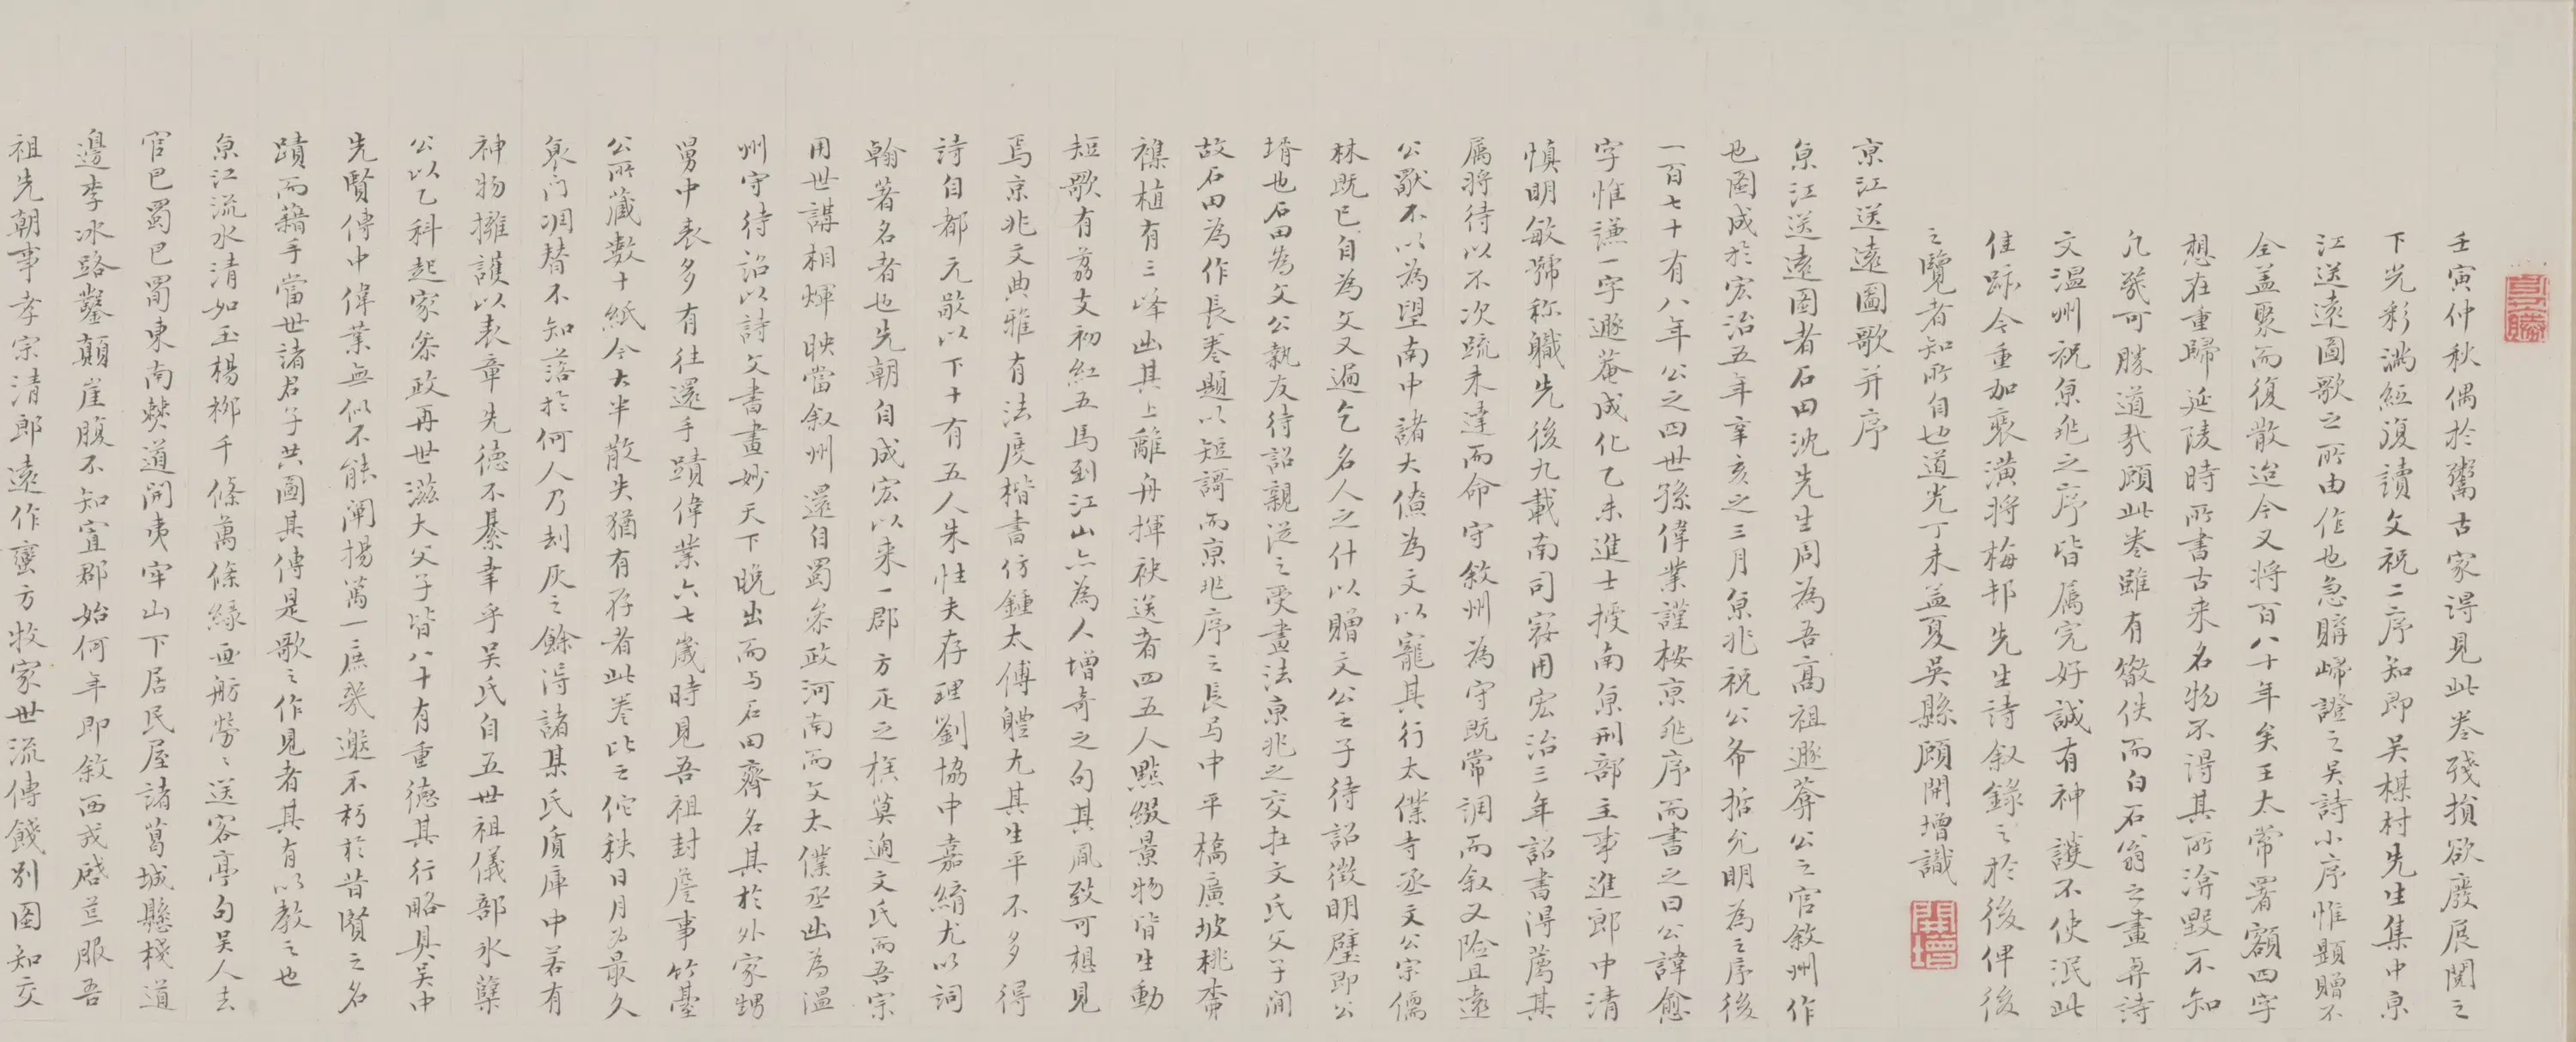 壬寅仲秋偶於鬻古家得見此卷殘損欲廢展閱之
下光彩滿紙復讀文祝二序知即吳楳村先生集中京
江送遠圖歌之所由作也急購歸證之吳詩小序惟題贈不
全盖聚而復散迨今又將百八十年矣王太常署額四字
想在重歸延陵時所書古來名物不得其所淪毀不知
凡幾可勝道哉顧此卷雖有散佚而白石翁之畫幷詩
文溫州祝京兆之序皆属完好誠有神護不使泯此
佳跡今重加裒潢將梅邨先生詩叙錄之於後俾後
之覽者知所自也道光丁未孟夏吳縣顧開增識
開增
京江送遠圖歌并序
京江送遠圖者石田沈先生周為吾高祖遯菴公之官敘州作
也圖成於宏治五年辛亥之三月京兆祝公希哲允明為之序後
一百七十有八年公之四世孫偉業謹桉京兆序而書之曰公諱愈
字惟謙一字遯菴成化乙未進士授南京刑部主事進郎中清
慎明敏號称職先後九載南司寇用宏治三年詔書得薦其
属將待以不次疏未達而命守敘州為守既常調而叙又險且遠
公猷不以為望南中諸大僚為文以寵其行太僕寺丞文公宗儒
林既已自為文又遍乞名人之什以贈文公之子待詔徵明璧即公
壻也石田為文公執友待詔親從之受畫法京兆之交在文氏父子間
故石田為作長卷題以短謌而京兆序之長馬中平橋廣坡桃柰
襍植有三峰出其上離舟揮袂送者四五人點綴景物皆生動
短歌有荔支初紅五馬到江山亦為人增奇之句其風致可想見
焉京兆文典雅有法度楷書仿鍾太傅體尤其生平不多得
詩自都元敬以下十有五人朱性夫存理劉協中嘉䋺尤以詞
翰著名者也先朝自成宏以来一郡方正之極莫過文氏而吾宗
用世講相煇映當叙州還自蜀参政河南而文太僕丞出為溫
州守待詔以詩文書畫妙天下晚出而与石田齊名其於外家甥
舅中表多有往還手蹟偉業六七歲時見吾祖封詹事竹臺
公所藏數十紙今大半散失猶有存者此卷比之佗秩日月為最久
衰门凋替不知落於何人乃刦灰之餘得諸某氏質庫中若有
神物擁護以表章先德不綦幸乎吳氏自五世祖儀部氷櫱
公以乙科起家参政再世滋大父子皆八十有重德其行略具吳中
先賢傳中偉業無似不能闡揚萬一庶幾邀不朽於昔賢之名
蹟而藉手當世諸君子共圖其傳是歌之作見者其有以教之也
京江流水清如玉楊柳千條萬條緑画舫勞〻送客亭句吳人去
官巴蜀巴蜀東南僰道開夷牢山下居民屋諸葛城懸棧道
邊李冰路鑿顛崖腹不知置郡始何年即敘西戎啟𦬒服吾
祖先朝事孝宗清郎遠作蠻方牧家世流傳餞別圖知交